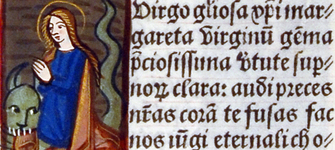 Virgo gl̄iosa xp̄i mar-
gareta virginū gēma
p̄ciosissima v̄tute sup̄-
norꝝ clara: audi preces
nr̄as corā te fusas fac
nos iūgi eternali cho-